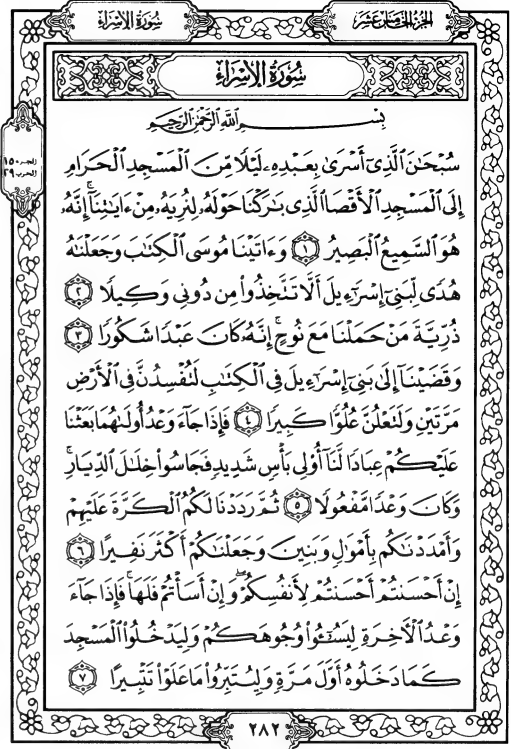 سُورَةُ الإِسْرَاءِ
الجُزْءُ الخَامِسَ عَشَرَ
سُورَةُ الإِسْرَاءِ
بِسْمِ ٱللَّهِ ٱلرَّحْمَٰنِ ٱلرَّحِيمِ
سُبْحَٰنَ ٱلَّذِىٓ أَسْرَىٰ بِعَبْدِهِۦ لَيْلًا مِّنَ ٱلْمَسْجِدِ ٱلْحَرَامِ
إِلَى ٱلْمَسْجِدِ ٱلْأَقْصَا ٱلَّذِى بَٰرَكْنَا حَوْلَهُۥ لِنُرِيَهُۥ مِنْ ءَايَٰتِنَآ ۚ إِنَّهُۥ
هُوَ ٱلسَّمِيعُ ٱلْبَصِيرُ ١ وَءَاتَيْنَا مُوسَى ٱلْكِتَٰبَ وَجَعَلْنَٰهُ
هُدًى لِّبَنِىٓ إِسْرَٰٓءِيلَ أَلَّا تَتَّخِذُوا۟ مِن دُونِى وَكِيلًا ٢
ذُرِّيَّةَ مَنْ حَمَلْنَا مَعَ نُوحٍ ۚ إِنَّهُۥ كَانَ عَبْدًا شَكُورًا ٣
وَقَضَيْنَآ إِلَىٰ بَنِىٓ إِسْرَٰٓءِيلَ فِى ٱلْكِتَٰبِ لَتُفْسِدُنَّ فِى ٱلْأَرْضِ
مَرَّتَيْنِ وَلَتَعْلُنَّ عُلُوًّا كَبِيرًا ٤ فَإِذَا جَآءَ وَعْدُ أُولَىٰهُمَا بَعَثْنَا
عَلَيْكُمْ عِبَادًا لَّنَآ أُو۟لِى بَأْسٍ شَدِيدٍ فَجَاسُوا۟ خِلَٰلَ ٱلدِّيَارِ ۚ
وَكَانَ وَعْدًا مَّفْعُولًا ٥ ثُمَّ رَدَدْنَا لَكُمُ ٱلْكَرَّةَ عَلَيْهِمْ
وَأَمْدَدْنَٰكُم بِأَمْوَٰلٍ وَبَنِينَ وَجَعَلْنَٰكُمْ أَكْثَرَ نَفِيرًا ٦
إِنْ أَحْسَنتُمْ أَحْسَنتُمْ لِأَنفُسِكُمْ ۖ وَإِنْ أَسَأْتُمْ فَلَهَا ۚ فَإِذَا جَآءَ
وَعْدُ ٱلْءَاخِرَةِ لِيَسُۥٓـُٔوا۟ وُجُوهَكُمْ وَلِيَدْخُلُوا۟ ٱلْمَسْجِدَ
كَمَا دَخَلُوهُ أَوَّلَ مَرَّةٍ وَلِيُتَبِّرُوا۟ مَا عَلَوْا۟ تَتْبِيرًا ٧
الجزء ١٥
الحزب ٢٩
٢٨٢